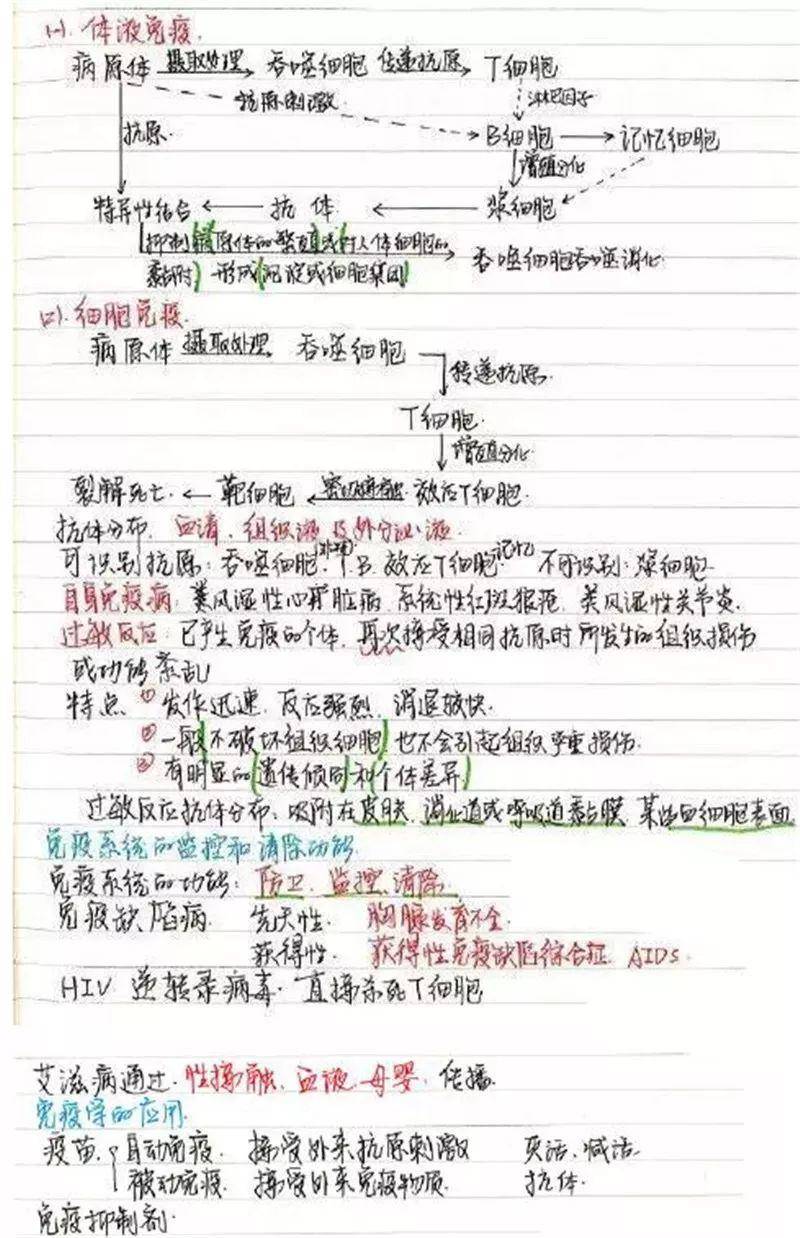 (一). 体液免疫.
病原体 摄取处理 吞噬细胞 传递抗原 T细胞
抗原刺激 淋巴因子
抗原. B细胞 记忆细胞
增殖分化
特异性结合 抗体 浆细胞
抑制病原体的繁殖或对人体细胞的
黏附 形成沉淀或细胞集团 吞噬细胞吞噬消化.
(二). 细胞免疫.
病原体 摄取处理 吞噬细胞
传递抗原.
T细胞.
增殖分化.
裂解死亡. 靶细胞 密切接触. 效应T细胞.
抗体分布. 血清、组织液及外分泌液.
可识别抗原: 吞噬细胞. T. B. 效应T细胞. 记忆 不可识别: 浆细胞
自身免疫病: 类风湿性心脏病. 系统性红斑狼疮. 类风湿性关节炎.
过敏反应: 已产生免疫的个体. 再次接受相同抗原时所发生的组织损伤
或功能紊乱
特点 ① 发作迅速. 反应强烈. 消退较快.
② 一般不破坏组织细胞 也不会引起组织严重损伤.
③ 有明显的遗传倾向和个体差异
过敏反应抗体分布: 吸附在皮肤、消化道或呼吸道黏膜、某些血细胞表面.
免疫系统的监控和清除功能.
免疫系统的功能: 防卫. 监控. 清除.
免疫缺陷病. 先天性. 胸腺发育不全.
获得性. 获得性免疫缺陷综合征. AIDS.
HIV 逆转录病毒. 直接杀死T细胞
艾滋病通过. 性接触、血液、母婴. 传播.
免疫学的应用.
疫苗. 自动免疫. 接受外来抗原刺激 灭活、减活.
被动免疫. 接受外来免疫物质. 抗体.
免疫抑制剂.